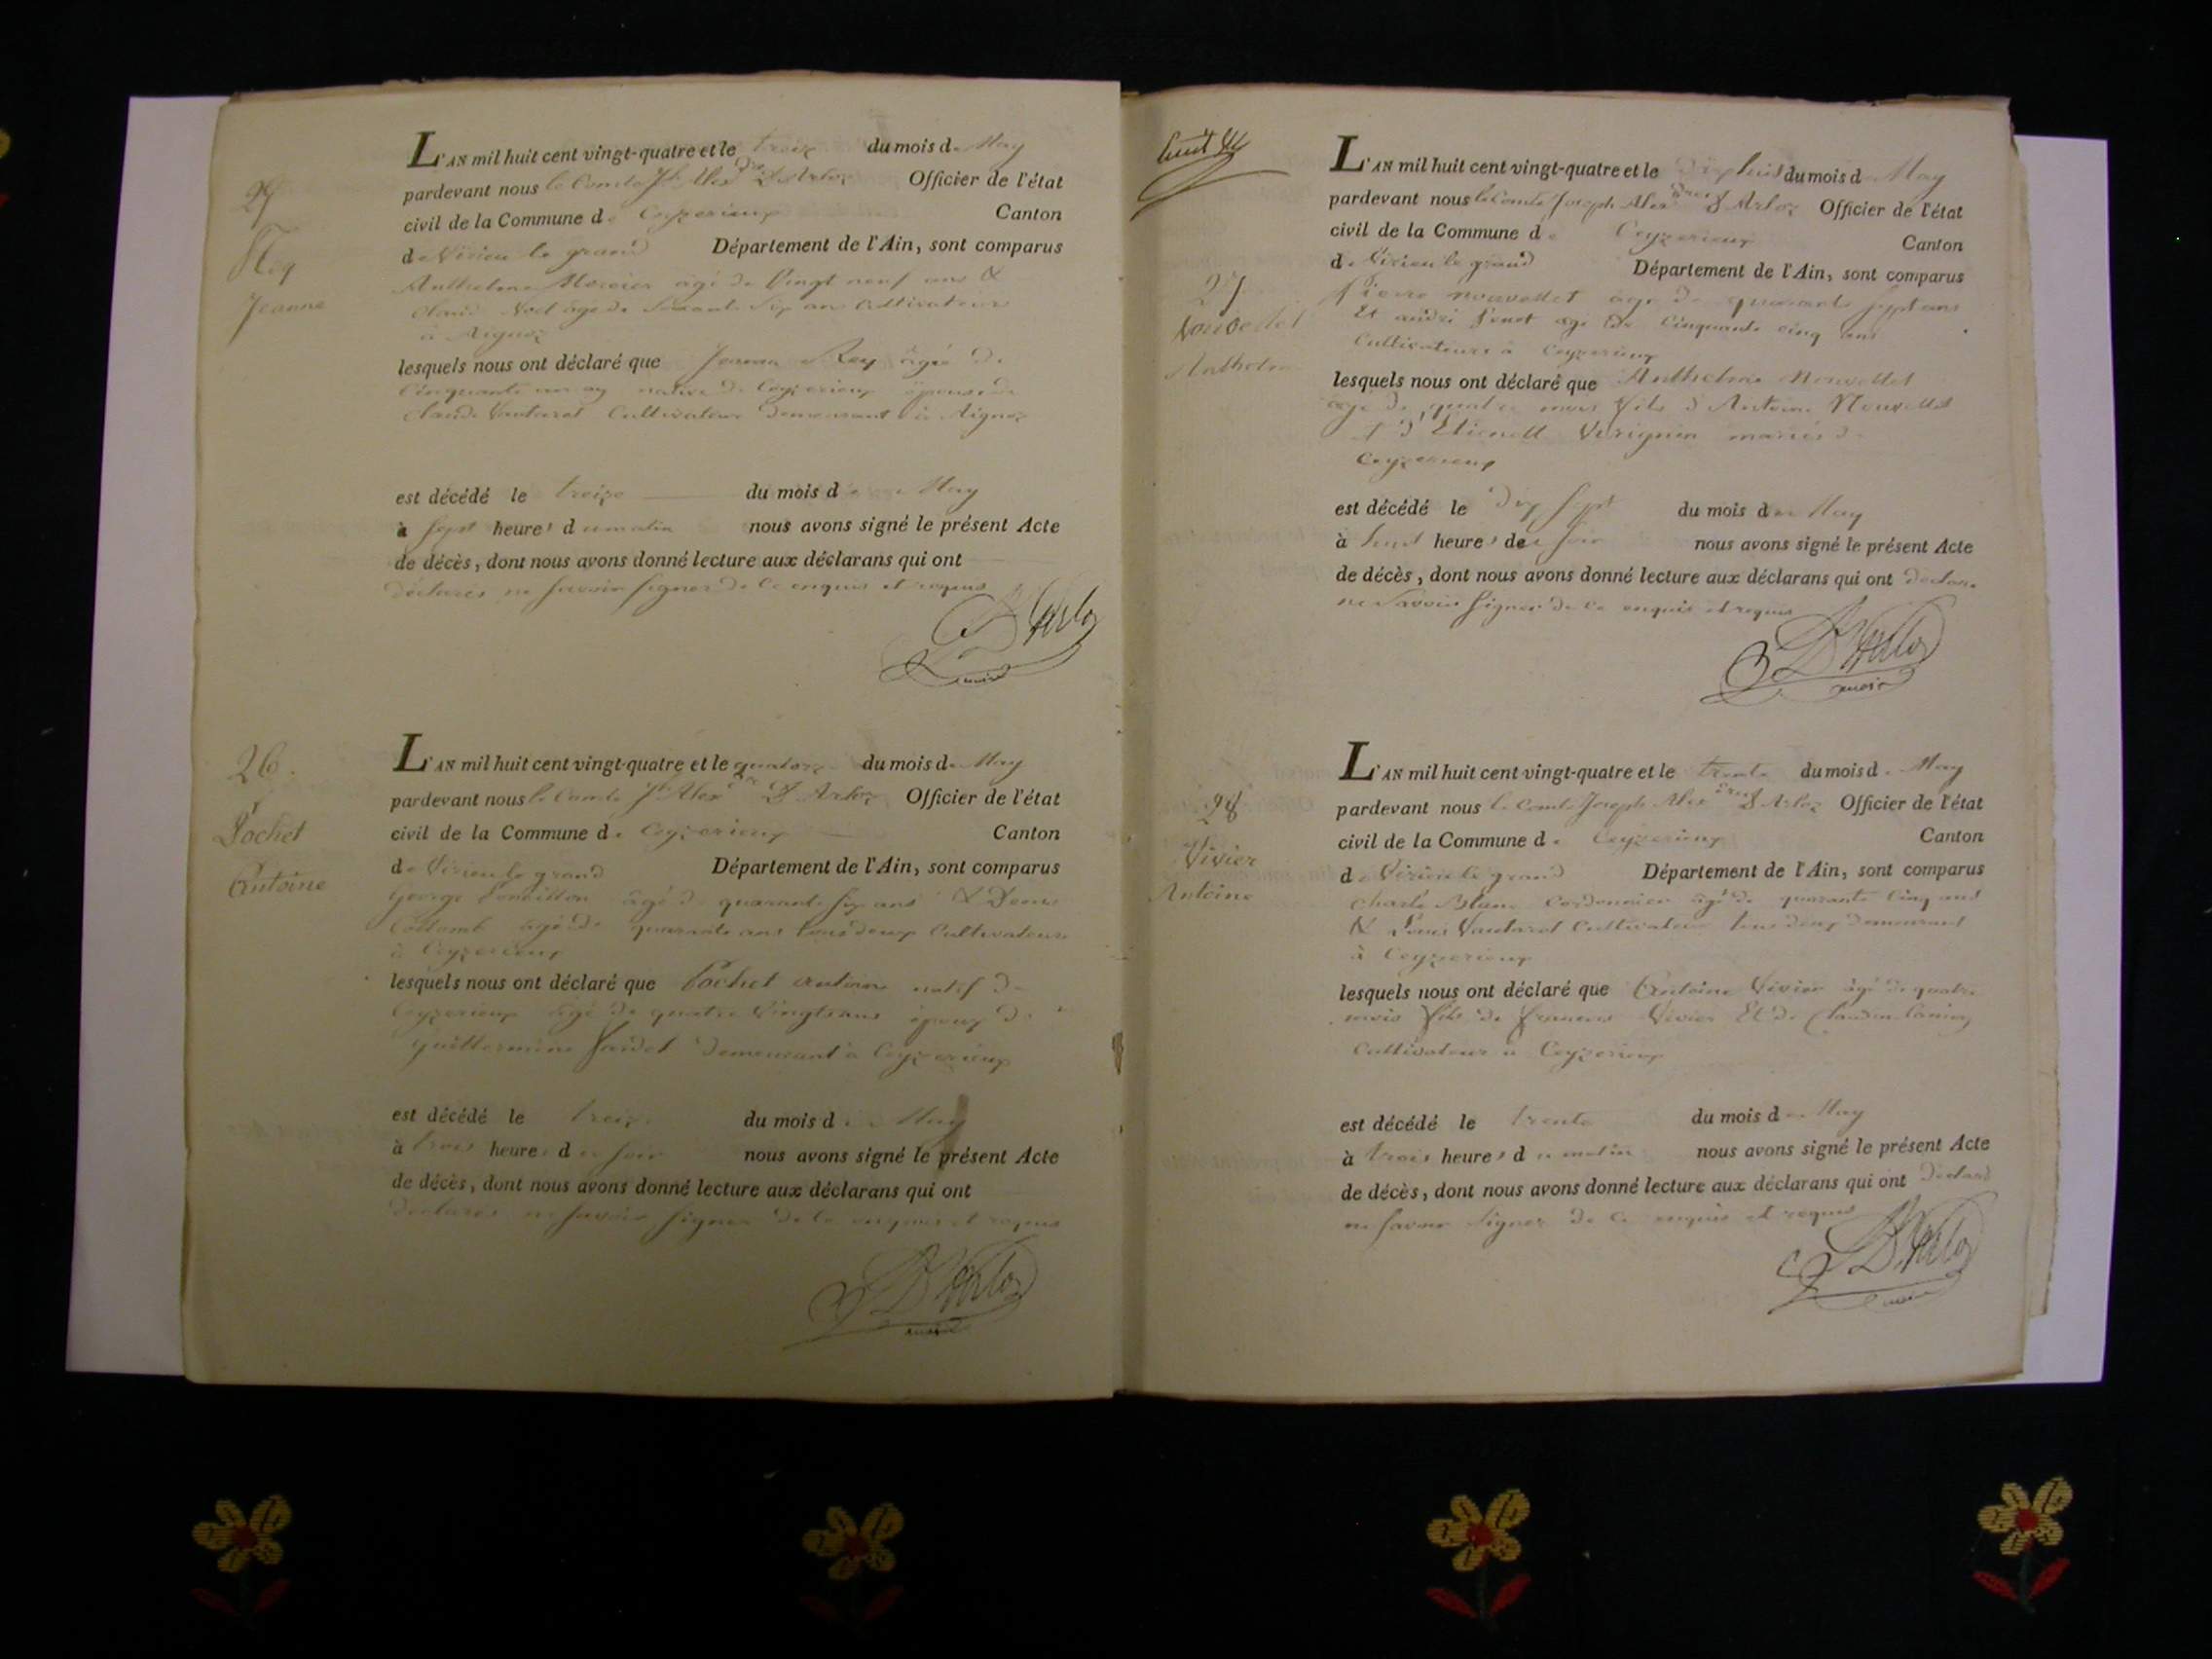 25
Rey
Jeanne
L'AN mil huit cent vingt-quatre et le treize du mois de May
pardevant nous le Comte Jh Alexdre D'Arloz Officier de l'état
civil de la Commune de Ceyzerieux Canton
de Virieu le grand Département de l'Ain, sont comparus
Anthelme Mercier agé de Vingt neuf ans &
Claude agé de Soixante Six ans Cultivateurs
à Aignoz
lesquels nous ont déclaré que Jeanne Rey âgée de
Cinquante native de Ceyzerieux épouse de
Claude Vautaret Cultivateur demeurant à Aignoz
est décédé le treize du mois de May
à Sept heures du matin nous avons signé le présent Acte
de décès, dont nous avons donné lecture aux déclarans qui ont
déclarés ne Savoir Signer de ce enquis et requis
D'Arloz
maire
26.
Pochet
Antoine
L'AN mil huit cent vingt-quatre et le quatorze du mois de May
pardevant nous le Comte Jh Alexdre D'Arloz Officier de l'état
civil de la Commune de Ceyzerieux Canton
de Virieu le grand Département de l'Ain, sont comparus
George agé de quarante Six ans & Denis
Collomb agé de quarante ans tous deux Cultivateurs
à Ceyzerieux
lesquels nous ont déclaré que Pochet Antoine natif de
Ceyzerieux agé de quatre Vingts ans époux de
Guillermine demeurant à Ceyzerieux
est décédé le treize du mois de May
à trois heures du Soir nous avons signé le présent Acte
de décès, dont nous avons donné lecture aux déclarans qui ont
déclarés ne Savoir Signer de ce enquis et requis
D'Arloz
maire
huit
27
Nouvellet
Anthelme
L'AN mil huit cent vingt-quatre et le Dix huit du mois de May
pardevant nous le Comte Joseph Alexdre D'Arloz Officier de l'état
civil de la Commune de Ceyzerieux Canton
de Virieu le grand Département de l'Ain, sont comparus
Pierre nouvellet agé de quarante Sept ans
Et andré agé de Cinquante cinq ans
Cultivateurs à Ceyzerieux
lesquels nous ont déclaré que Anthelme Nouvellet
agé de quatre mois fils d'Antoine Nouvellet
et d'Etienette mariés de
Ceyzerieux
est décédé le Dix Sept du mois de May
à huit heures du Soir nous avons signé le présent Acte
de décès, dont nous avons donné lecture aux déclarans qui ont déclaré
ne Savoir Signer de ce enquis et requis
D'Arloz
maire
28
Vivier
Antoine
L'AN mil huit cent vingt-quatre et le trente du mois de May
pardevant nous le Comte Joseph Alexdre D'Arloz Officier de l'état
civil de la Commune de Ceyzerieux Canton
de Virieu le grand Département de l'Ain, sont comparus
Charle Blanc Cordonnier agé de quarante Cinq ans
& Louis Vautaret Cultivateur tous deux demeurant
à Ceyzerieux
lesquels nous ont déclaré que Antoine Vivier agé de quatre
mois fils de francois Vivier Et de Claudine
Cultivateur à Ceyzerieux
est décédé le trente du mois de May
à trois heures du matin nous avons signé le présent Acte
de décès, dont nous avons donné lecture aux déclarans qui ont déclaré
ne Savoir Signer de ce enquis et requis
D'Arloz
maire